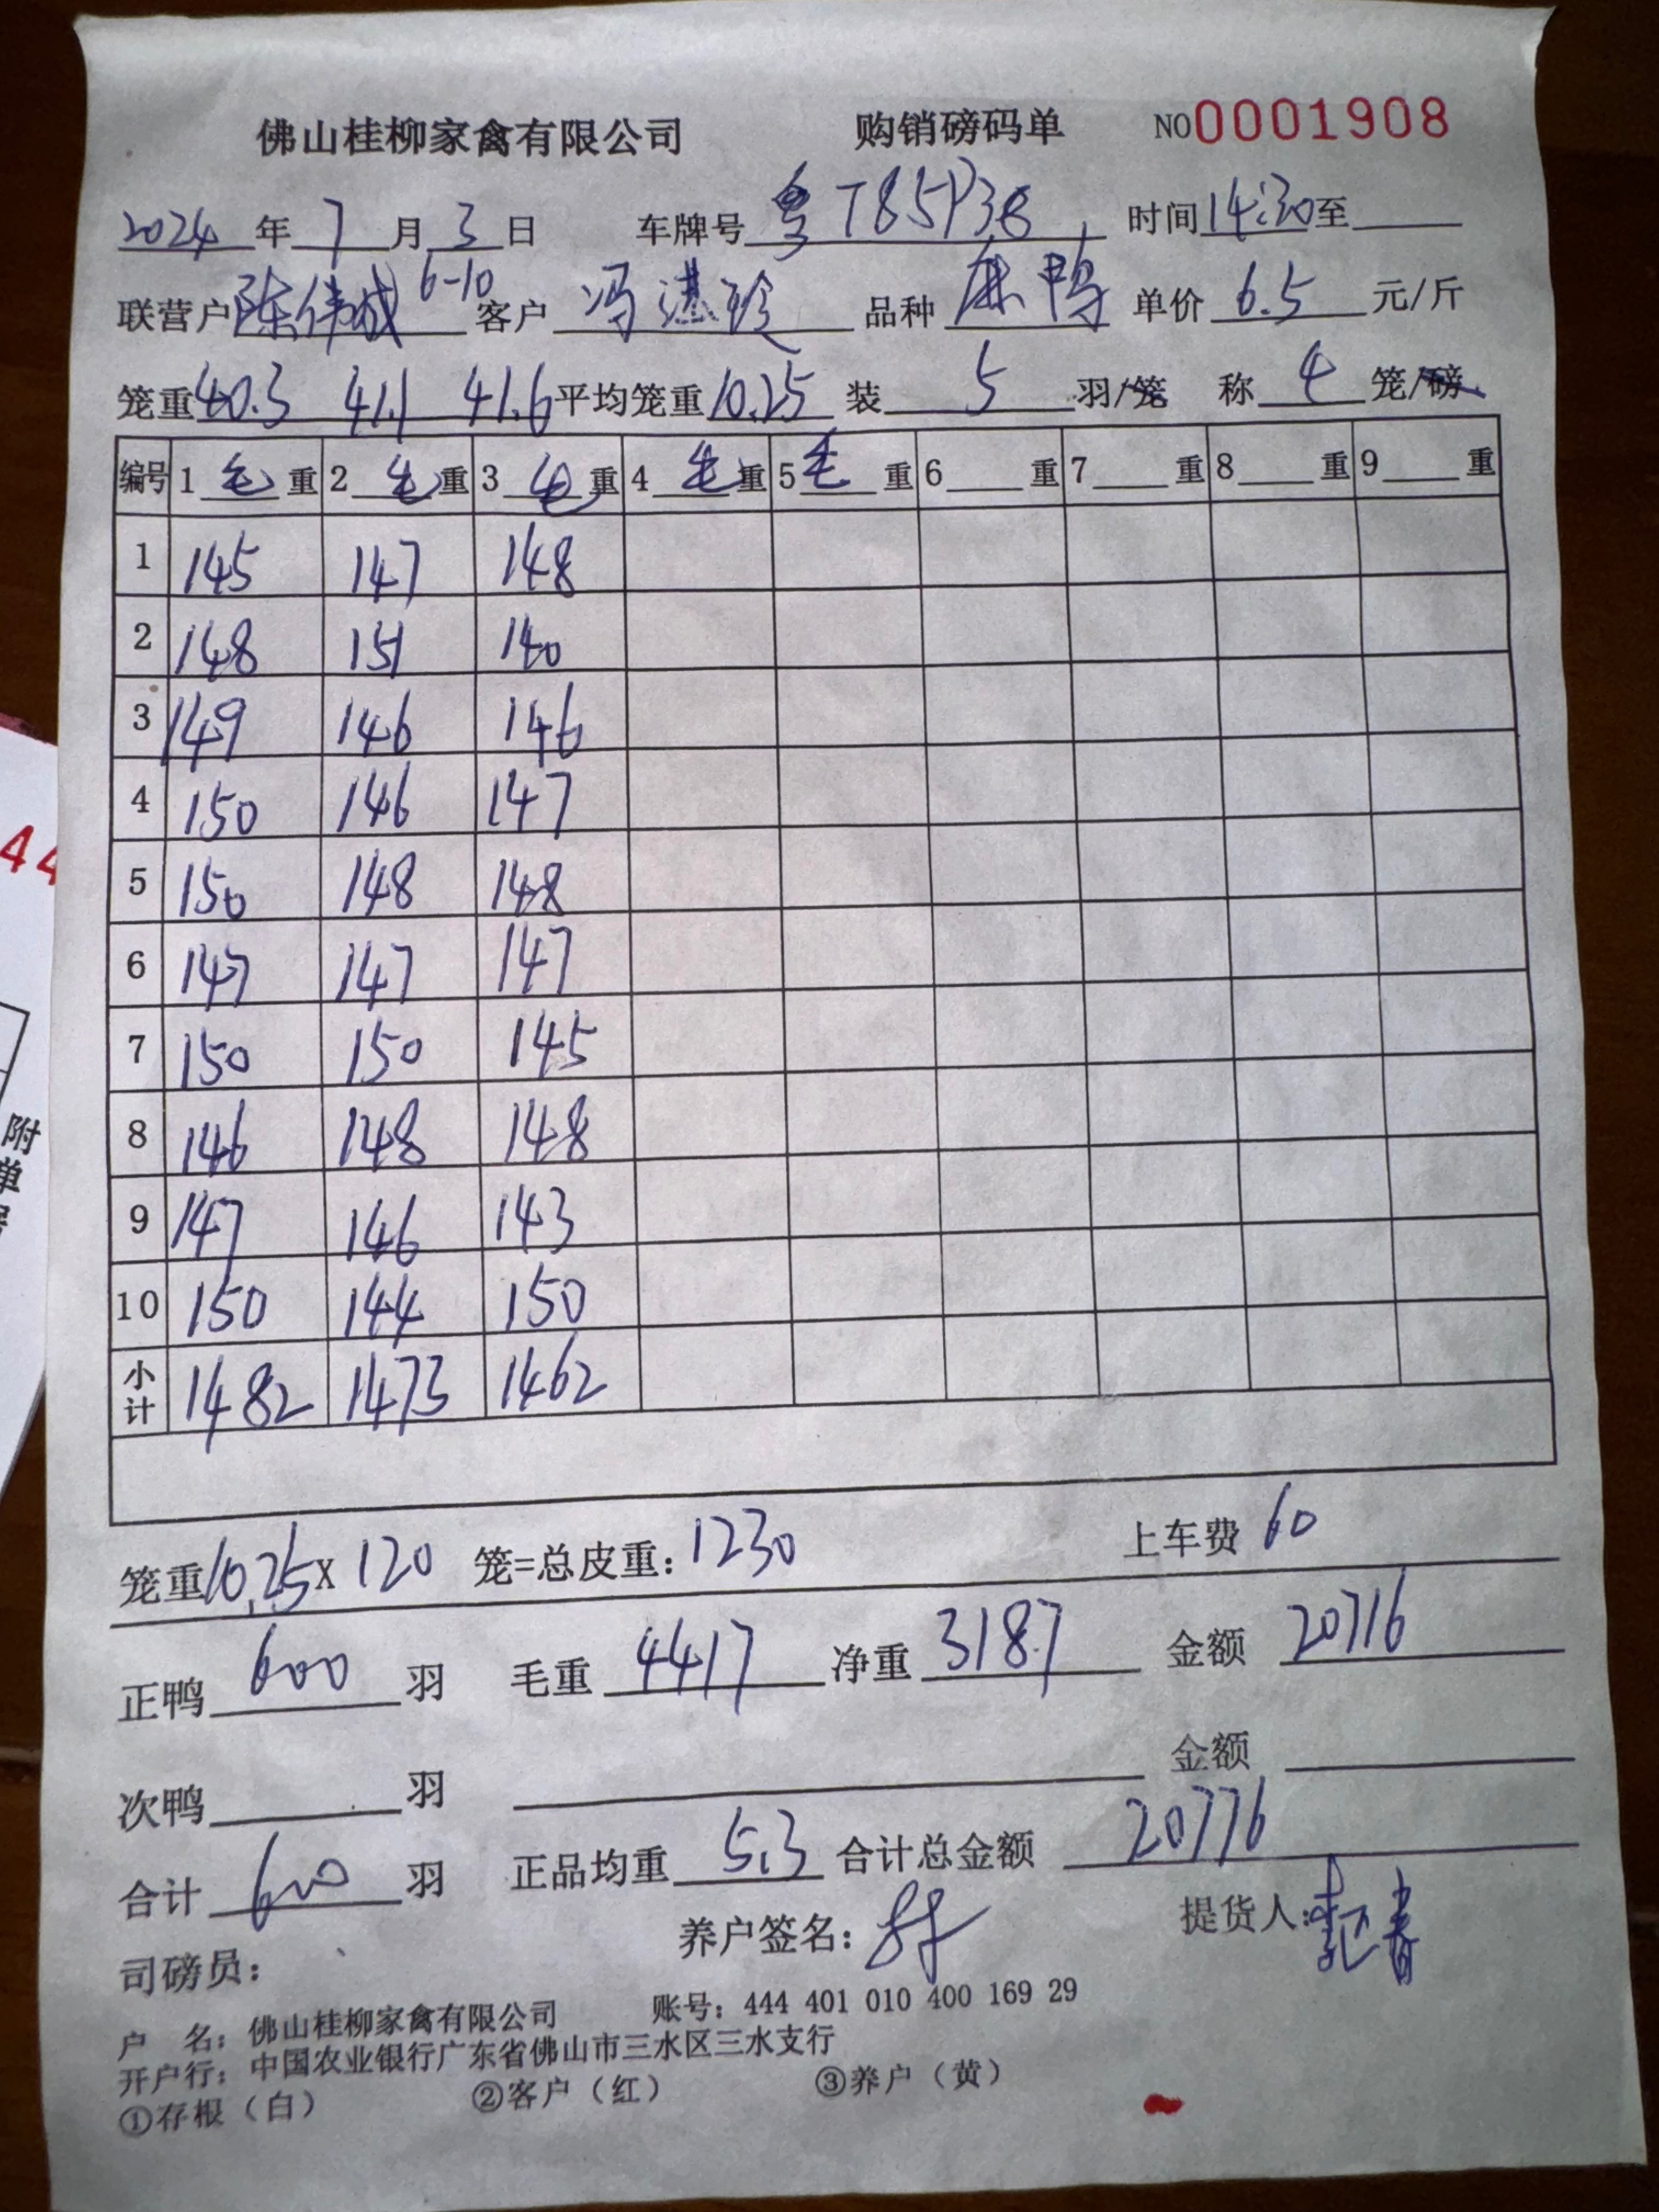 佛山桂柳家禽有限公司 购销磅码单 NO0001908
2024年7月3日 车牌号粤T85P38 时间14:30至
联营户陈伟城6-10客户冯湛珍 品种麻鸭 单价6.5元/斤
笼重40.3 41.1 41.6平均笼重10.25 装5羽/笼 称4笼/磅
编号 1毛重 2毛重 3毛重 4毛重 5毛重 6重 7重 8重 9重
1 145 147 148
2 148 151 140
3 149 146 146
4 150 146 147
5 150 148 148
6 147 147 147
7 150 150 145
8 146 148 148
9 147 146 143
10 150 144 150
小计 1482 1473 1462
笼重10.25X120笼=总皮重:1230 上车费60
正鸭600羽 毛重4417净重3187 金额20716
次鸭 羽 金额
合计600羽 正品均重5.3合计总金额20776
司磅员: 养户签名: 提货人:
户 名:佛山桂柳家禽有限公司 账号:444 401 010 400 169 29
开户行:中国农业银行广东省佛山市三水区三水支行
①存根(白) ②客户(红) ③养户(黄)
44
附
单